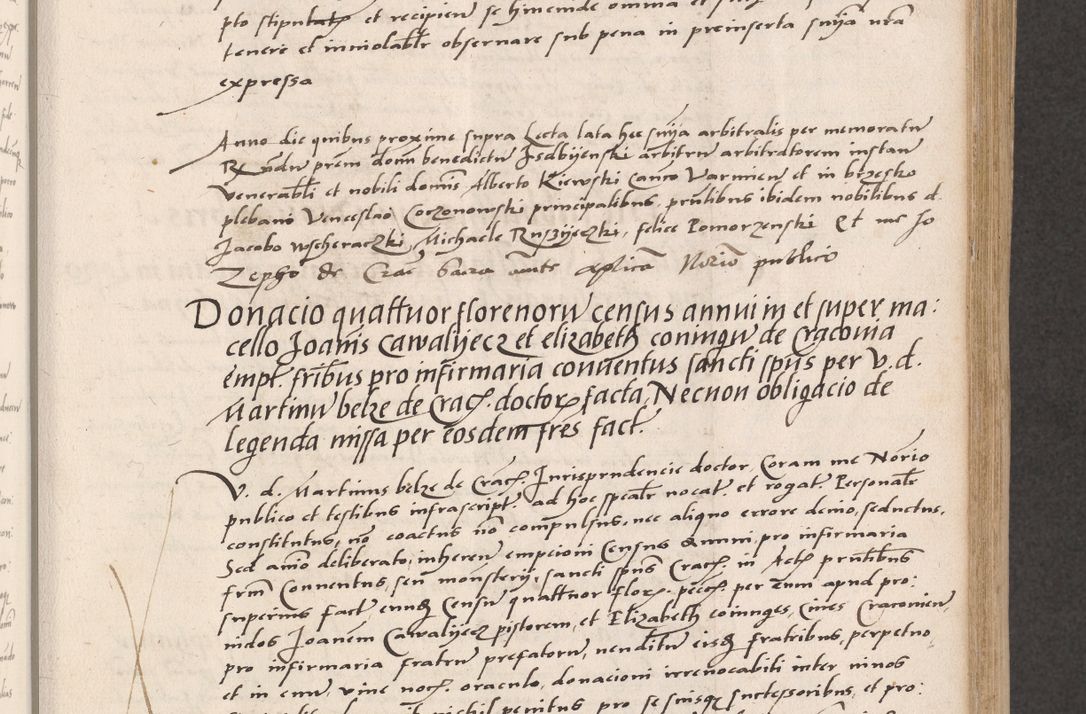 pto stiputatꝫ et recipien se hmemide omnia et
tenere et inuiolabłr obseruare sub pena in preinserta snÿa nrã
expressa
Anno die quibus proxime supra Lecta lata hec snÿa arbitralis per memoratu
Rñdu prem domi benedictu Isdbijenski arbitru arbitratorem instan
venerabłi et nobili domis Alberto Kiewski Canco Varmien et in brzesko
plebano Venceslao Coczonowski principalibus, pñtibus ibidem nobilibus d.
Jacobo wscheraczki, Michaele Ruszÿeczki, felice Pomorzenski Et me Jo
Zepho de Crac̃ Sacra autte aplica Norio publico
Donacio quattuor florenoru census annui in et super ma:
cello Joanis Cawalijecz et elizabeth coniugu de Cracouia
empt. fribus pro infirmaria conuentus sancti spus per V. d.
Martinu belze de Crac. doctorꝫ facta, Necnon obligacio de
legenda missa per eosdem fres fact.
V. d. Martinus belze de Crac. Jurisprudencie doctor, Coram me Norio
publico et testibus infrascript. ad hoc spealr uocat. et rogat. Personalr
constitutus, nõ coactus nõ compulsus, nec aliquo errore deuio, seductus,
Sed animo deliberato, inheren empcioni Census Annui, pro infirmaria
frum Conuentus, seu monsterij, sancti spus Crac. in Act. pñtibus
superius fact. eunqꝫ Censu quattuor flor. pecc. per eum apud pro:
uidos Joanem Cawalijecz pistorem, et Elizabeth coiuges, Ciues Cracouien,
pro infirmaria fratru prefatoru, uenditu eisqꝫ fratribus, perpetuo,
et in euu, viue uoc. oraculo, donacioni irreuocabiti inter uiuos
nichil penitus pro se suisqꝫ successoribus, et pro: